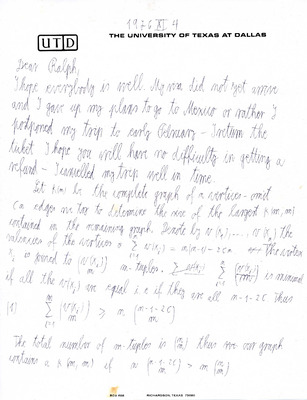 1976 XI 4
UTD THE UNIVERSITY OF TEXAS AT DALLAS
Dear Ralph,
I hope everybody is well. My visa did not yet arrive
and I gave up my plans to go to Mexico or rather I
postponed my trip to early February - I return the
ticket I hope you will have no difficulty in getting a
refund - I cancelled my trip well in time.
Let be the complete graph of n vertices - omit
Cn edges we try to determine the size of the largest K(m, m)
contained in the remaining graph. Denote by v(x₁), ..., v(xₙ) the
valencies of the vertices
xᵢ is joined to (v(xᵢ) m) m-tuples. is minimal
if all the v(xᵢ) are equal i.e. if they are all n-1-2C Thus
(1) ≥ n (n-1-2C m)
The total number of m-tuples is (n m) thus our graph
contains a K(m, m) if n (n-1-2C m) > m (n m)
BOX 688 RICHARDSON, TEXAS 75080